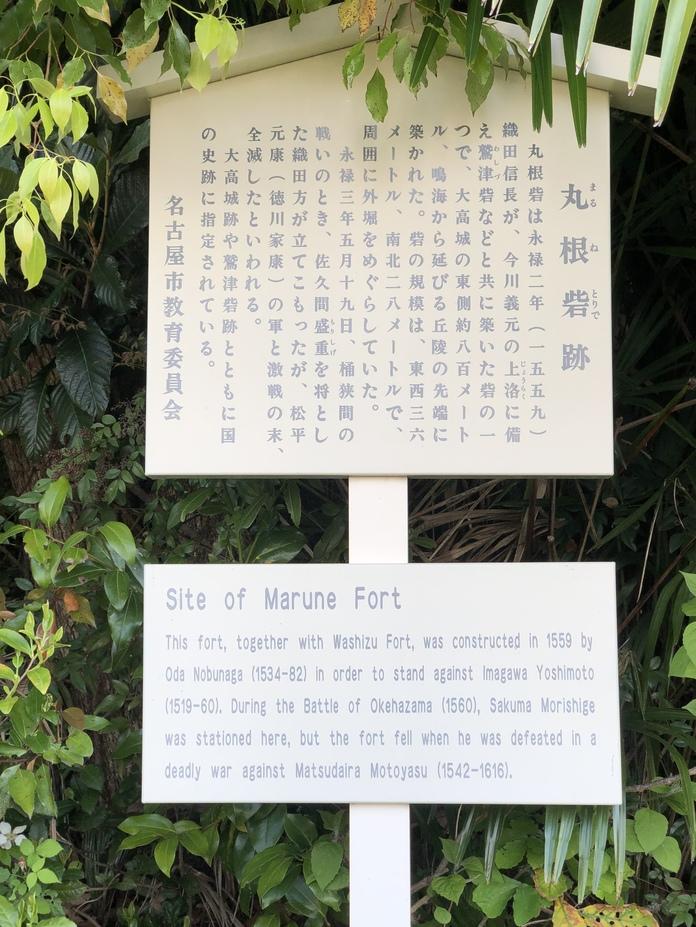 丸根砦跡
まる
ね
とりで
丸根砦は永禄二年（一五五九）
織田信長が、今川義元の上洛に備
じょうらく
え鷲津砦などと共に築いた砦の一
わしづ
つで、大高城の東側約八百メート
ル、鳴海から延びる丘陵の先端に
築かれた。砦の規模は、東西三六
メートル、南北二八メートルで、
周囲に外堀をめぐらしていた。
永禄三年五月十九日、桶狭間の
戦いのとき、佐久間盛重を将とし
もりしげ
た織田方が立てこもったが、松平
元康（徳川家康）の軍と激戦の末、
全滅したといわれる。
大高城跡や鷲津砦跡とともに国
の史跡に指定されている。
名古屋市教育委員会
Site of Marune Fort
This fort, together with Washizu Fort, was constructed in 1559 by
Oda Nobunaga (1534-82) in order to stand against Imagawa Yoshimoto
(1519-60). During the Battle of Okehazama (1560), Sakuma Morishige
was stationed here, but the fort fell when he was defeated in a
deadly war against Matsudaira Motoyasu (1542-1616).